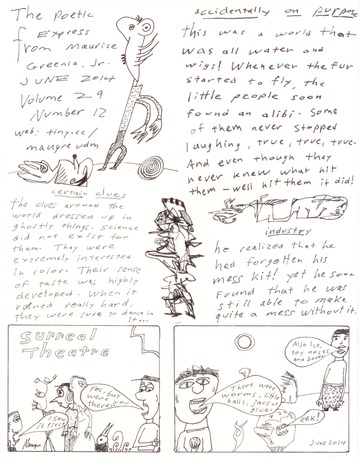 The Poetic
Express
from Maurice
Greenia, Jr.
JUNE 2014
Volume 29
Number 12
web: tiny.cc/
maugre udm
certain clues
The clues around the
world dressed up in
ghostly things. Science
did not exist for
them. They were
extremely interested
in color. Their sense
of taste was highly
developed. When it
rained really hard,
they were sure to dance in
it...
accidentally on purpose
This was a world that
was all water and
wigs! Whenever the fur
started to fly, the
little people soon
found an alibi. Some
of them never stopped
laughing, true, true, true.
And even though they
never knew what hit
them – well hit them it did!
industry
he realized that he
had forgotten his
mess kit! yet he soon
found that he was
still able to make
quite a mess without it.
Surreal
Theatre
I saw
it first!
Yes,
but
were
there
Maugre
There were
worms, little
balls, jars of
glue!
Also Ice,
toy noses
and
EAK!
June 2014